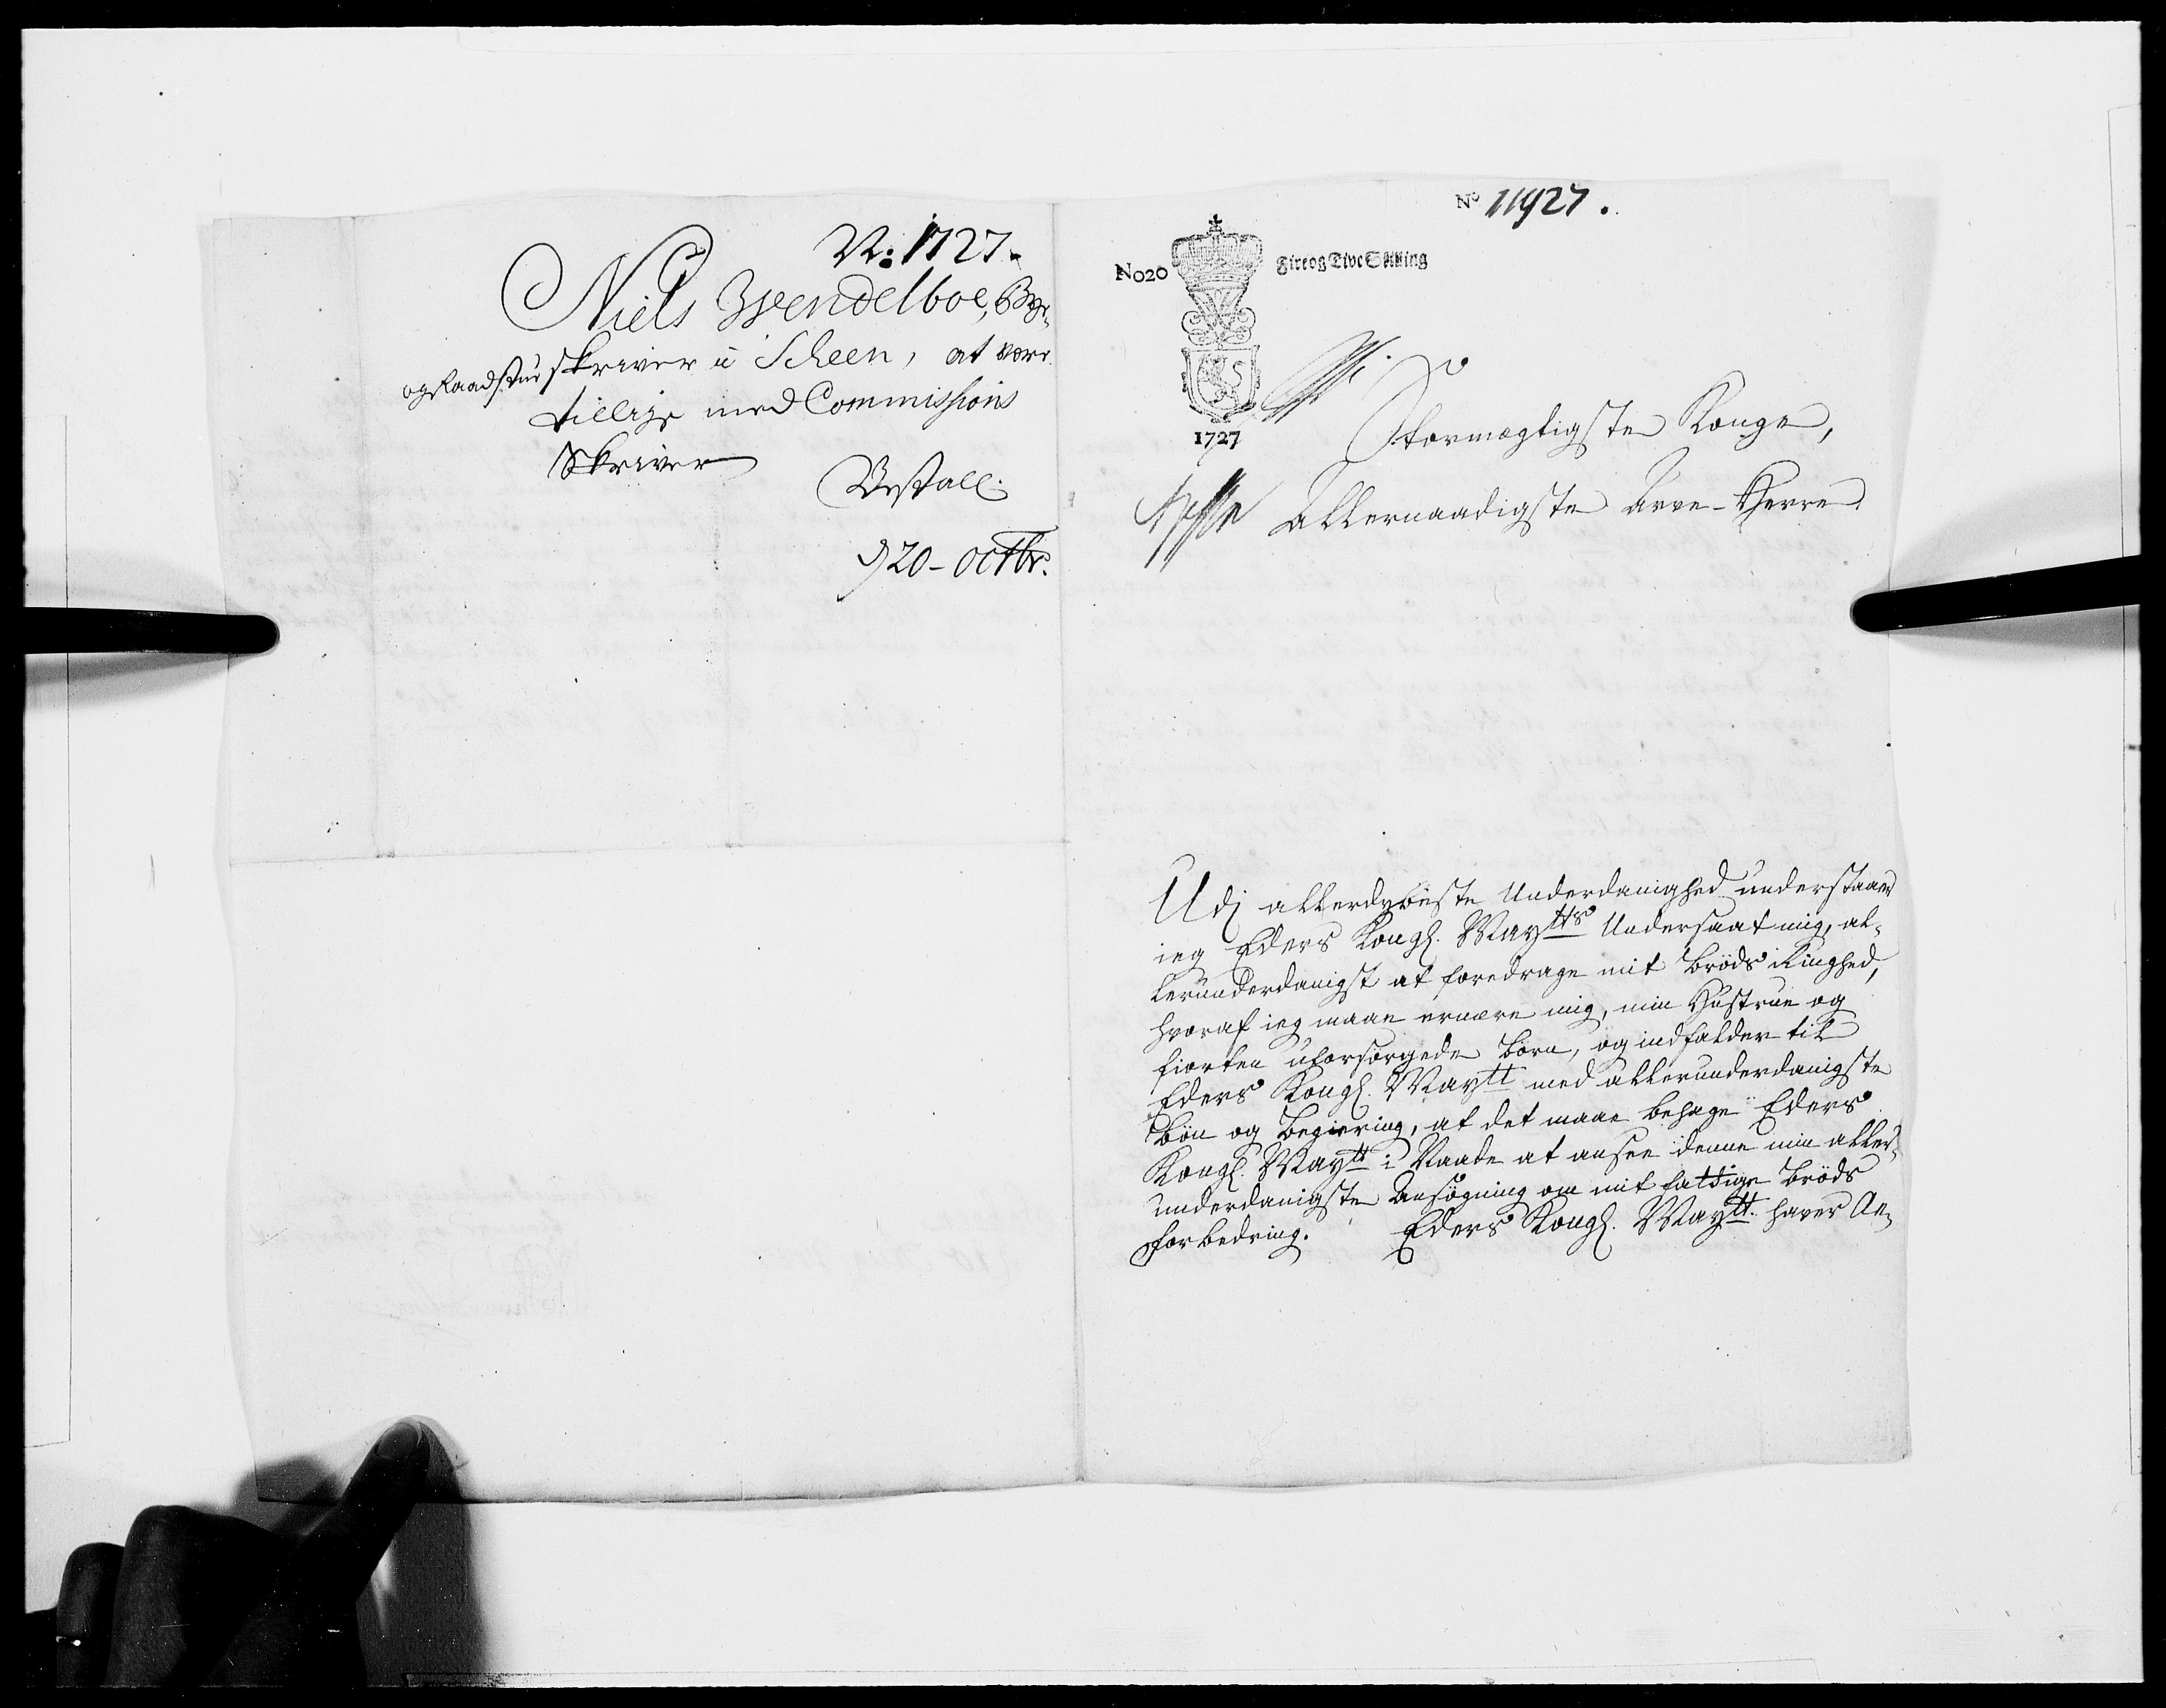 N: 1727.
Niels Wendelboe, Bye-
og Raadstue skriver i Scheen, at være
tillige med Commissions
Skriver
Bestall.
d 20 - Octbr.
No 11927.
No20
Fire og Tive Skilling
1727
Stormægtigste Konge,
Allernaadigste Arve-Herre
Udj allerdybeste Underdanighed understaaer
ieg Eders Kongl. Maytts Undersaat mig, al-
lerunderdanigst at foredrage mit brøds Ringhed,
hvoraf ieg maae ernære mig, min Hustrue og
fiorten uforsørgede børn, og indfalder til
Eders Kongl. Maytt med allerunderdanigste
bøn og begiering, at det maae behage Eders
Kongl. Maytt i Naade at ansee denne min aller-
underdanigste Ansøgning om mit fattige brøds
forbedring. Eders Kongl. Maytt. haver An-